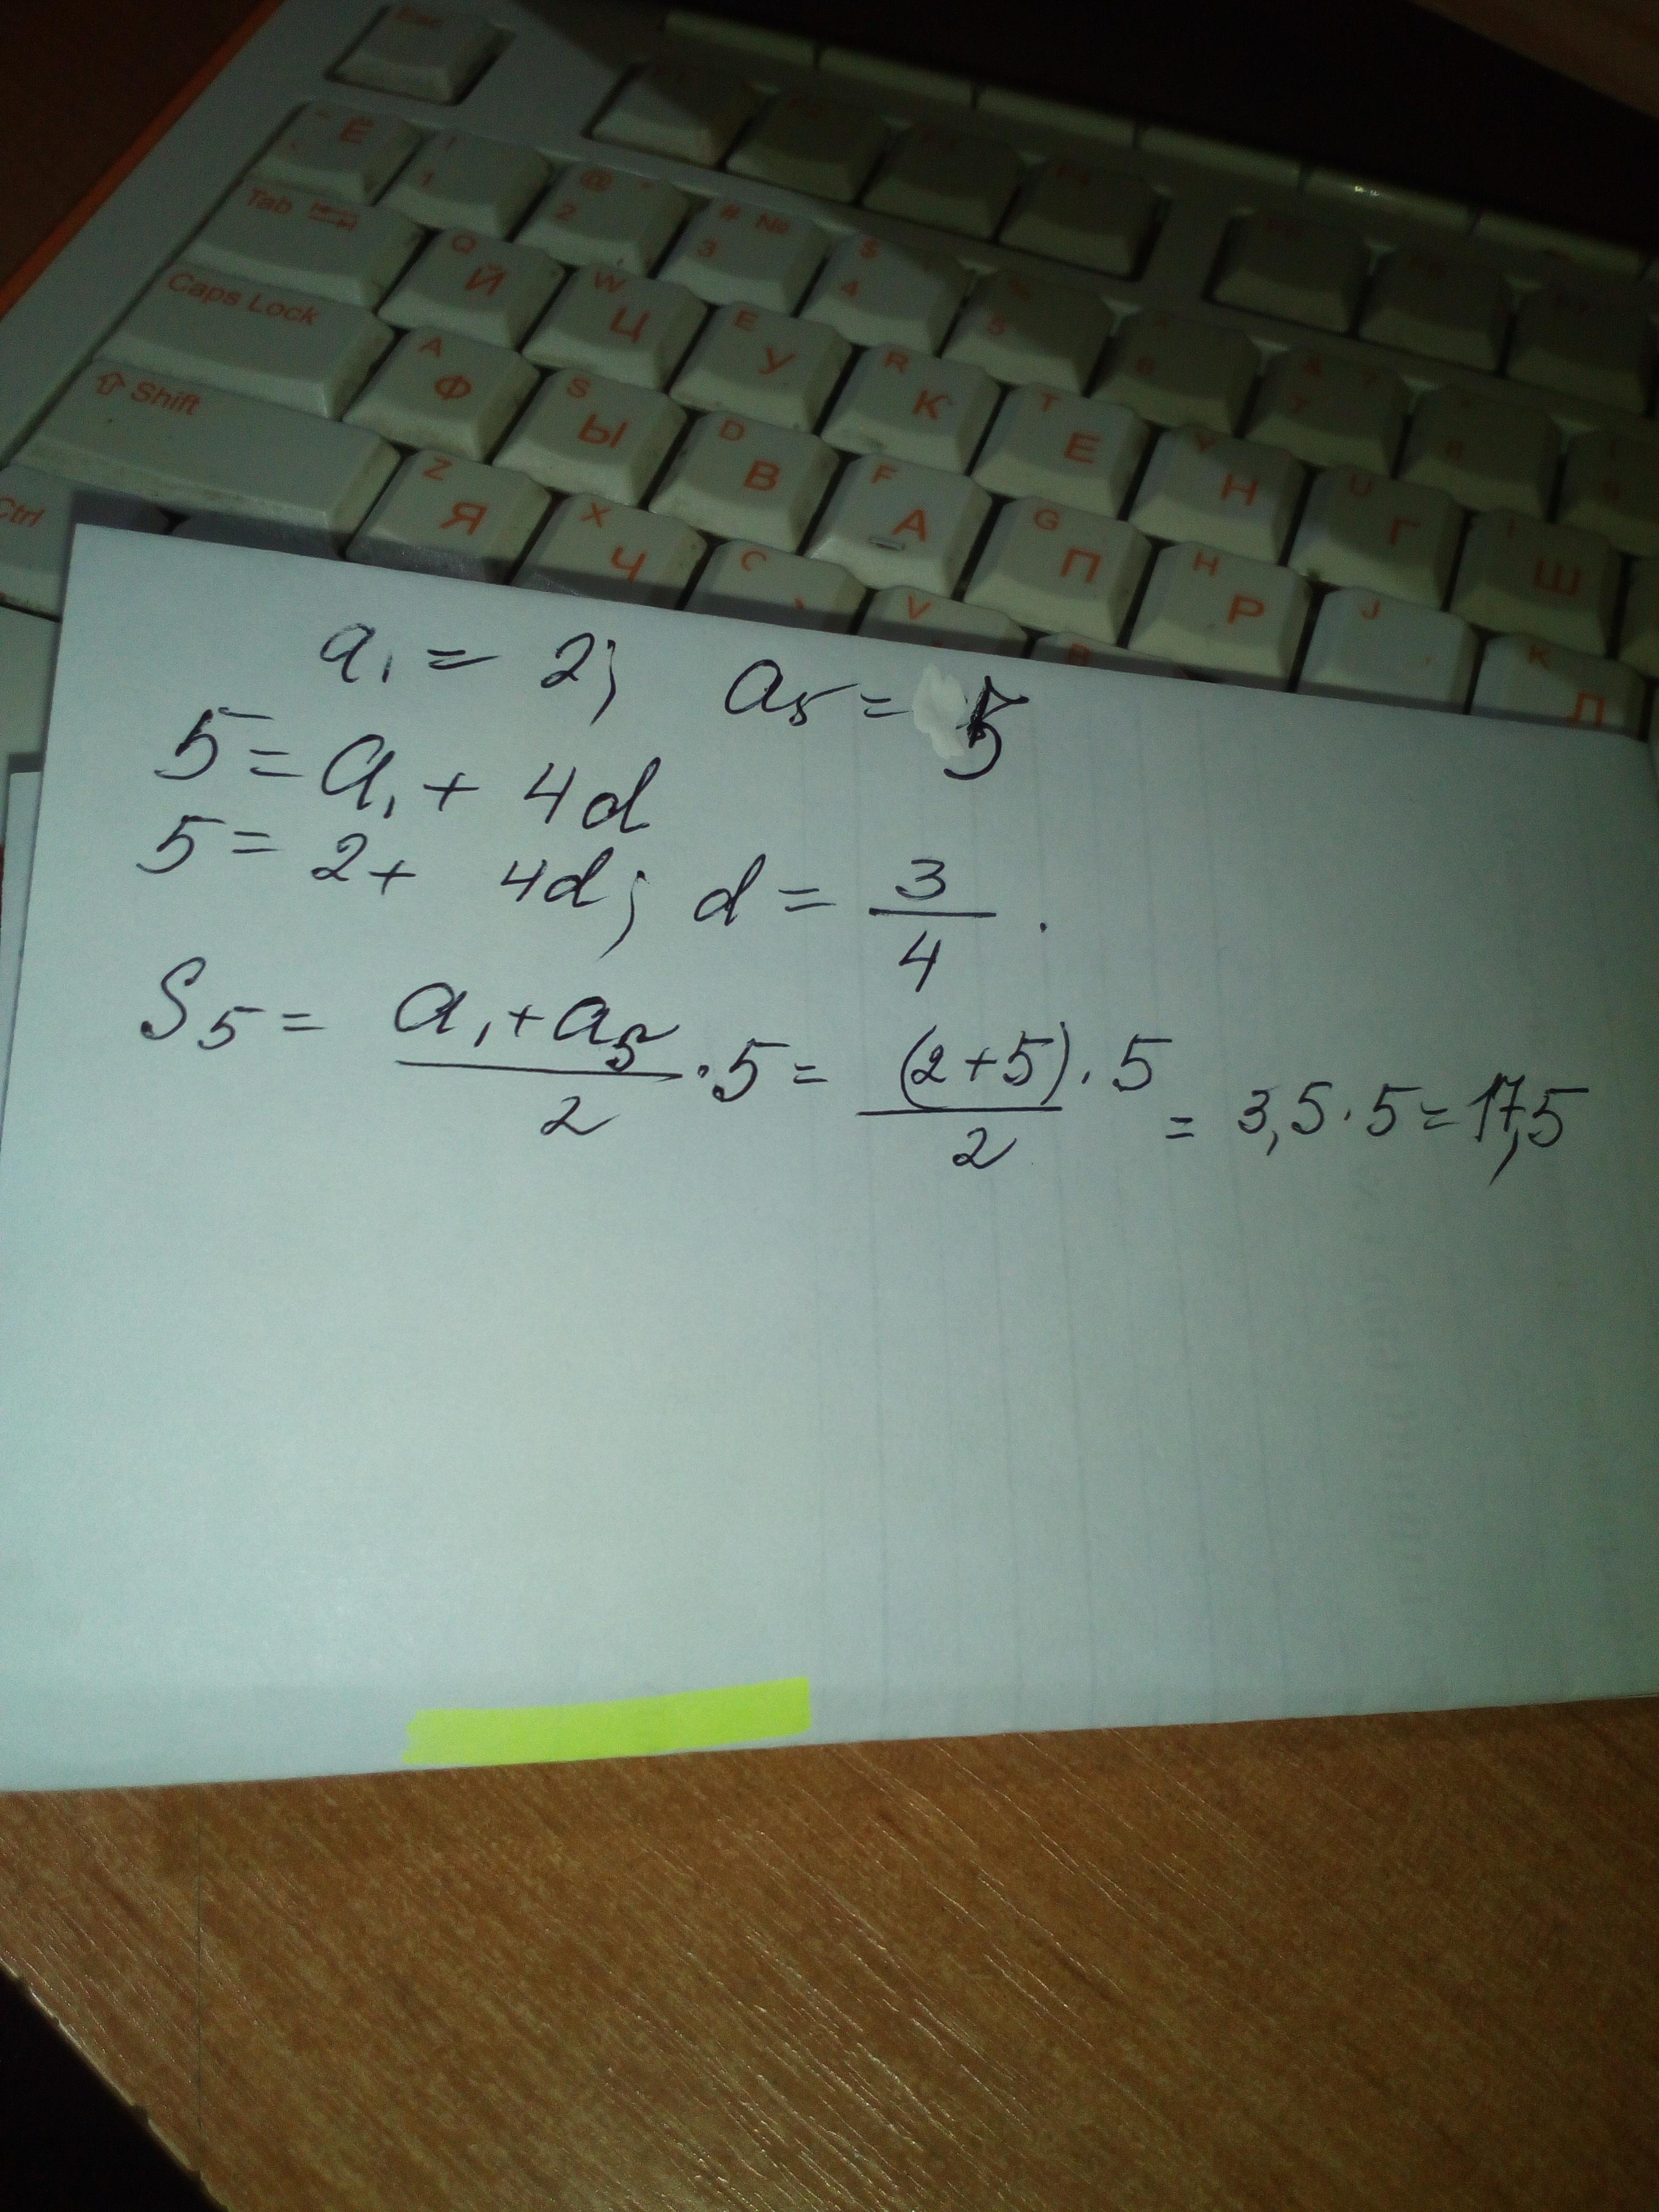 Esc
~ Ё
! 1
@ " 2
# № 3
$ 4
% 5
Tab
Q Й
W Ц
E У
R К
T Е
Y Н
U Г
Ш
Caps Lock
A Ф
S Ы
D В
F А
G П
H Р
J
K Л
Shift
Z Я
X Ч
C
V
Ctrl
a₁ = 2; a₅ = 5
5 = a₁ + 4d
5 = 2 + 4d; d = 3/4 .
S₅ = (a₁ + a₅)/2 · 5 = (2+5) · 5/2 = 3,5 · 5 = 17,5